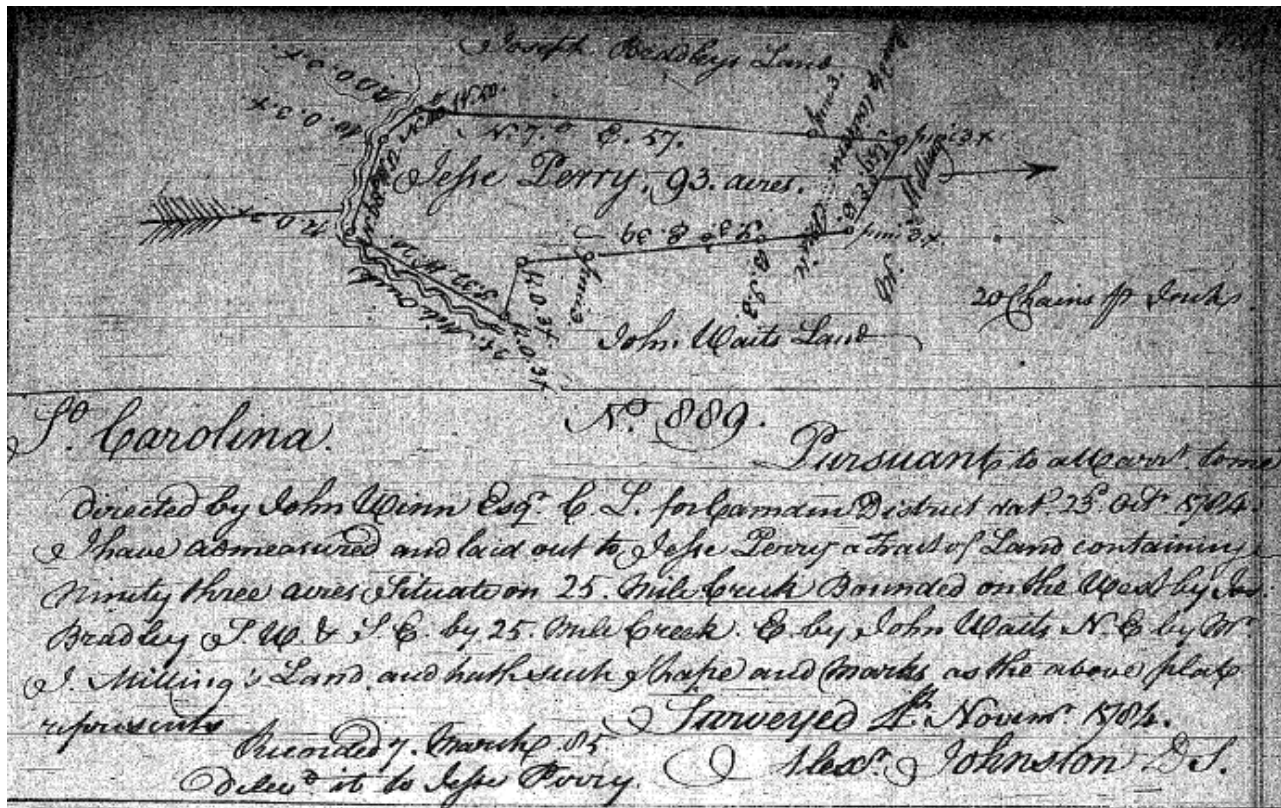 Joseph Bradleys Land
R.O.3.x.
W.O.3.x.
N. 7. E. 57.
pine 3.
pine 3.x.
Jesse Perry, 93. acres.
pine 3.x.
pine 3.
20 Chains pr Inch
John. Waits Land
So. Carolina.
No. 889.
Pursuant to a Warrt. to me
directed by John Winn Esqr. C. L. for Camden District dat. 25th. Octr. 1784.
I have admeasured and laid out to Jesse Perry a Tract of Land containing
Ninety three acres Situate on 25. Mile Creek Bounded on the West by Jos.
Bradley S W. & S. E. by 25. Mile Creek. E. by John Waits N. E by Mr
J. Milling's Land and hath such shape and marks as the above plat
represents
Surveyed 4th. Novemr. 1784.
Recorded 7. March. 85
Alexr. Johnston D S.
Deliv'd it to Jesse Perry.